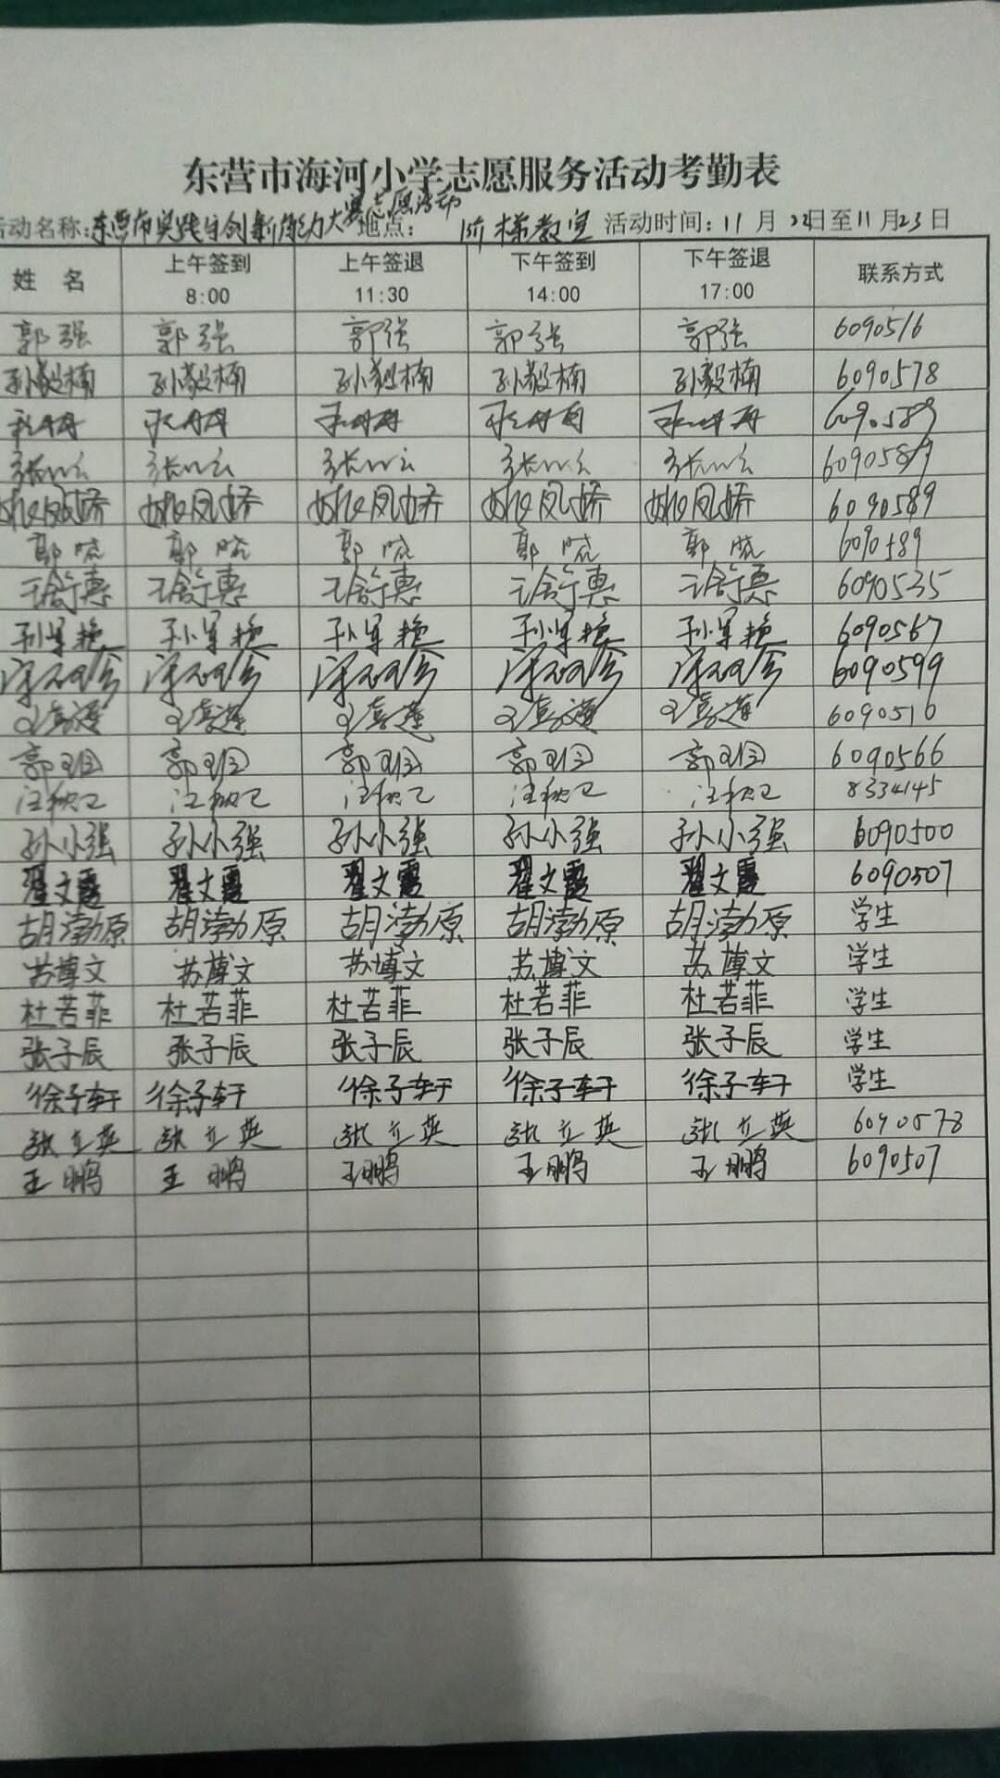 东营市海河小学志愿服务活动考勤表
活动名称:东营市实践与创新能力大赛志愿活动 地点: 阶梯教室 活动时间: 11 月 22日至11月23 日
姓 名 上午签到 8:00 上午签退 11:30 下午签到 14:00 下午签退 17:00 联系方式
郭强 郭强 郭强 郭强 郭强 6090516
孙毅楠 孙毅楠 孙毅楠 孙毅楠 孙毅楠 6090578
6090589
6090589
姚凤娇 姚凤娇 姚凤娇 姚凤娇 姚凤娇 6090589
郭 郭 郭 郭 郭 6090589
王舒惠 王舒惠 王舒惠 王舒惠 王舒惠 6090535
孙军艳 孙军艳 孙军艳 孙军艳 孙军艳 6090567
6090599
6090510
郭 郭 郭 郭 郭 6090566
汪秋卫 汪秋卫 汪秋卫 汪秋卫 汪秋卫 8334145
孙小强 孙小强 孙小强 孙小强 孙小强 6090500
翟文霞 翟文霞 翟文霞 翟文霞 翟文霞 6090507
胡渤原 胡渤原 胡渤原 胡渤原 胡渤原 学生
苏博文 苏博文 苏博文 苏博文 苏博文 学生
杜若菲 杜若菲 杜若菲 杜若菲 杜若菲 学生
张子辰 张子辰 张子辰 张子辰 张子辰 学生
徐子轩 徐子轩 徐子轩 徐子轩 徐子轩 学生
张立英 张立英 张立英 张立英 张立英 6090578
王鹏 王鹏 王鹏 王鹏 王鹏 6090507